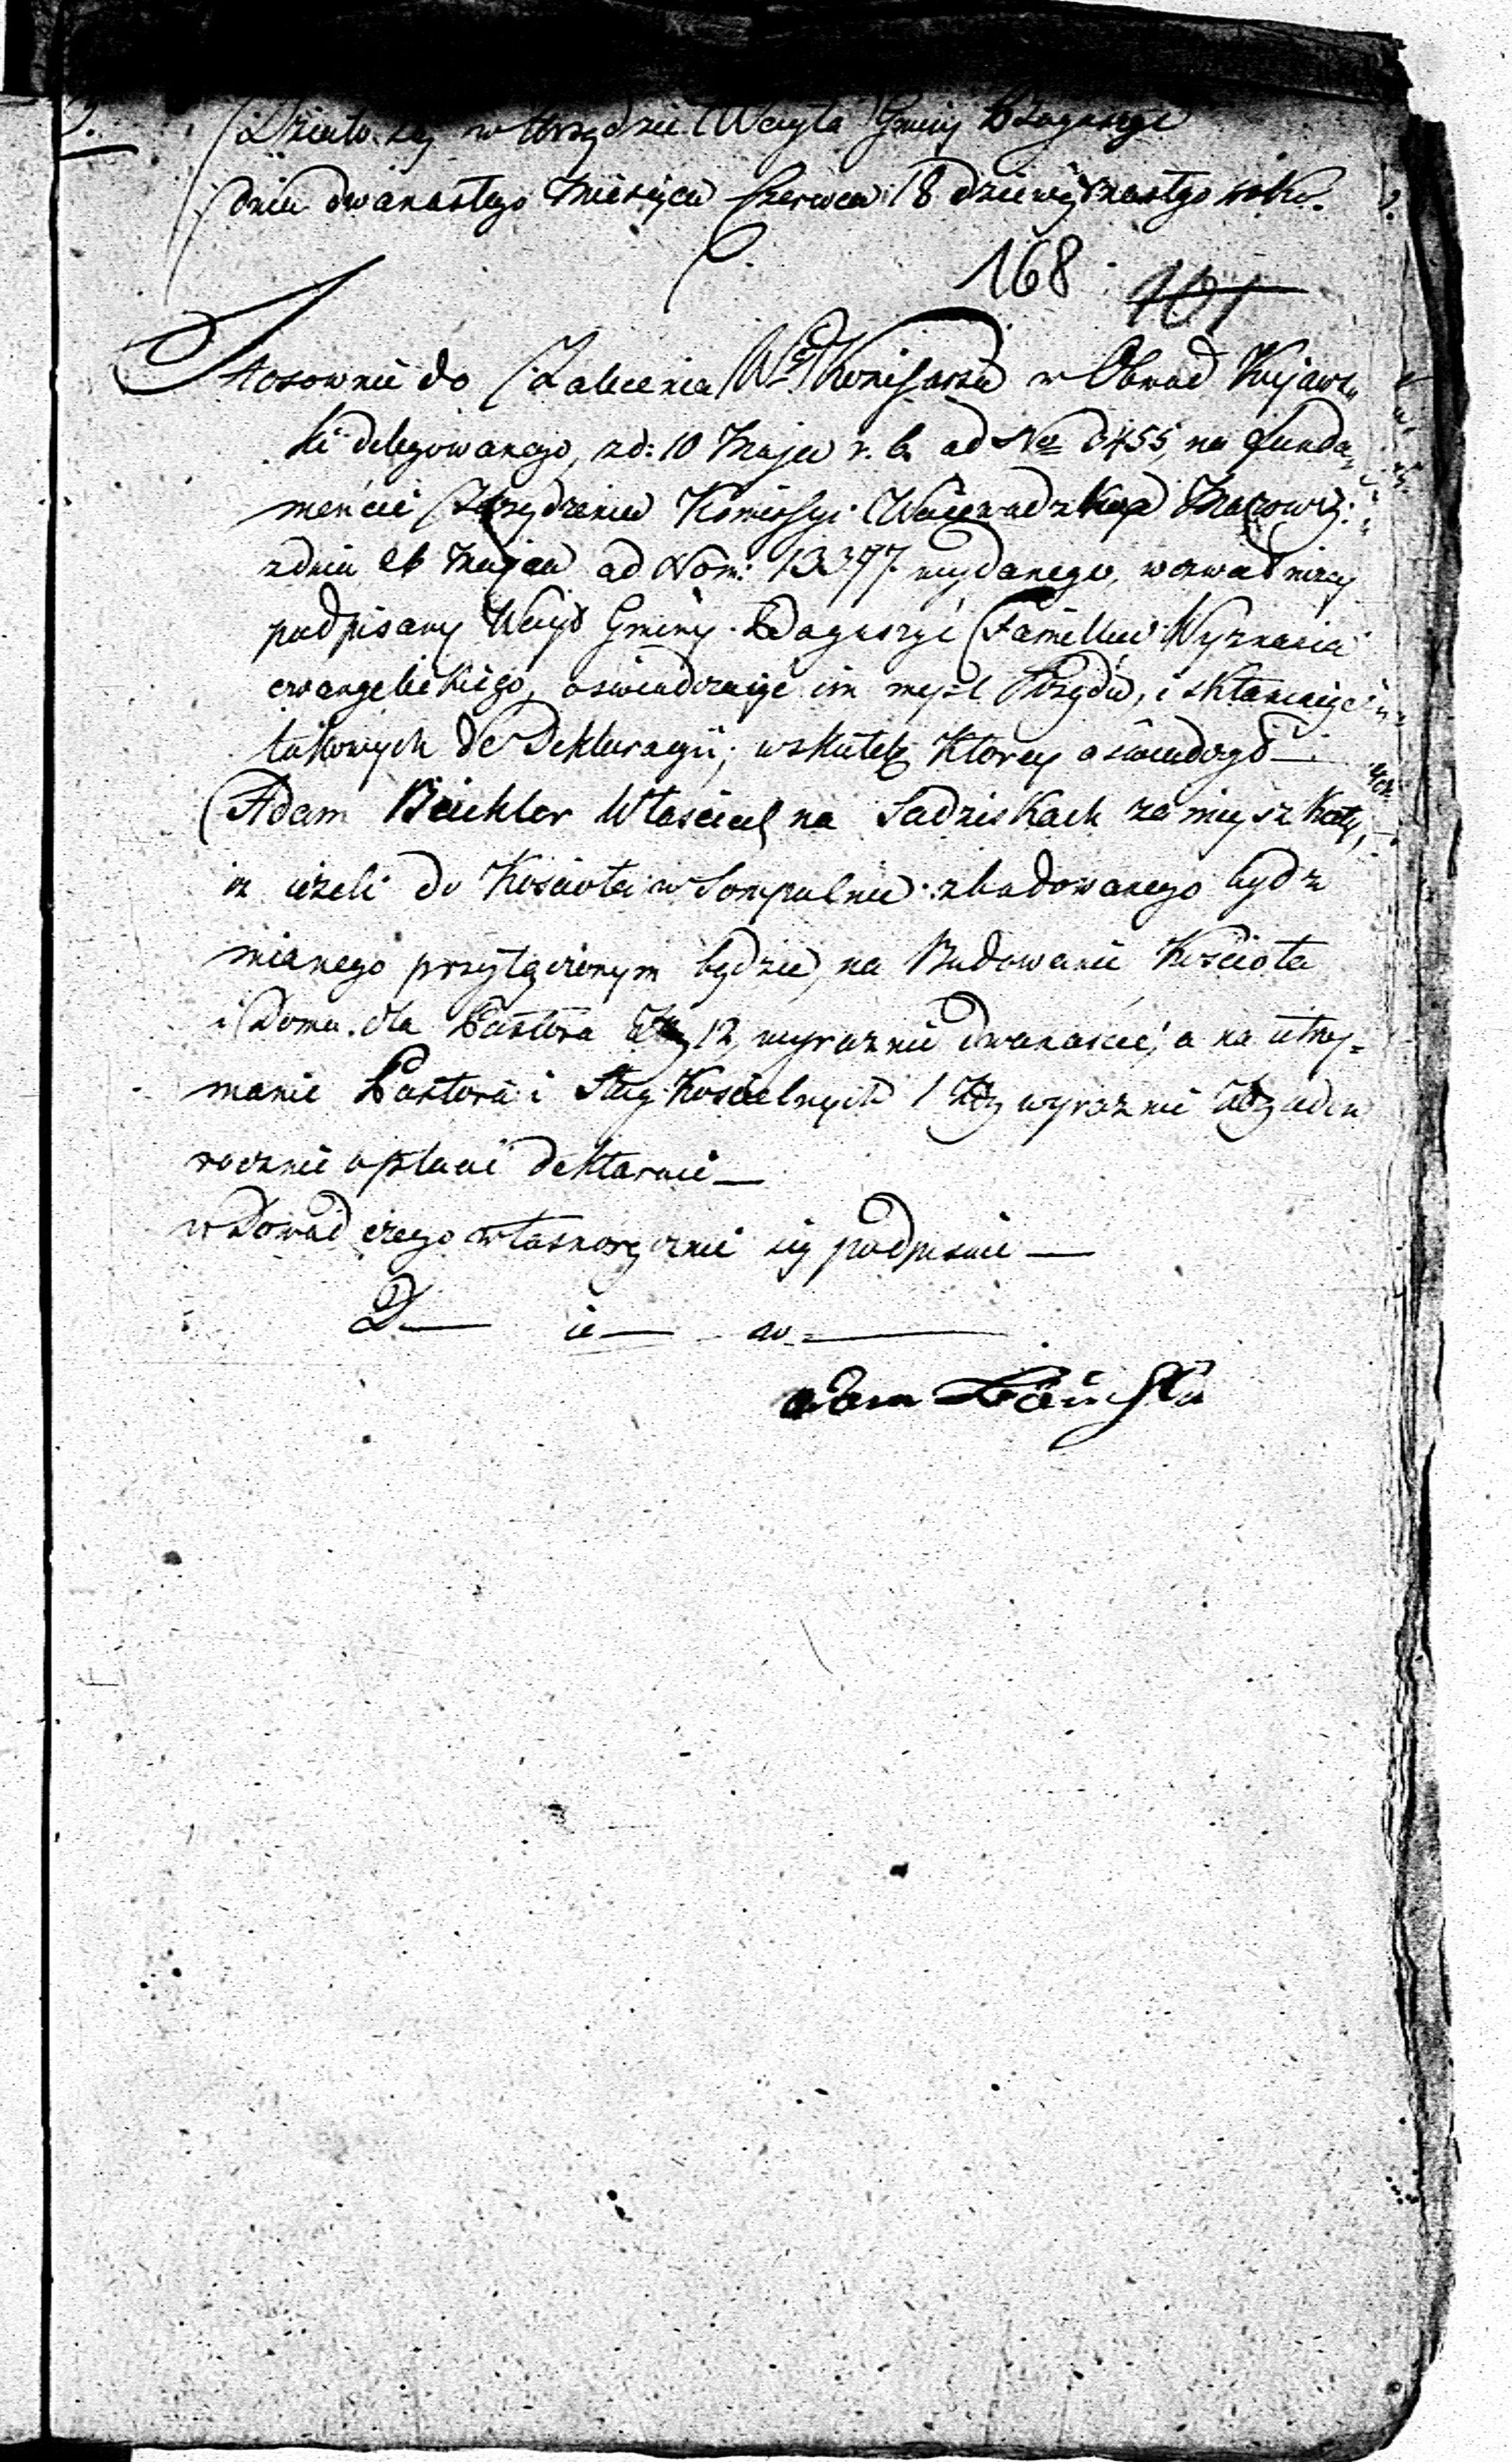 9.
Działo się w Urzędzie Woyta Gminy
dnia dwanastego Miesiąca Czerwca 18 dziewiętnastgo roku.
168 101
Stosownie do Zalecenia Wgo Komissarza w Obwód Kujaws„
ki delegowanego, z d: 10 Maja r. b. ad No 6455, na funda„
mencie Urządzenia Komissyi Woiewodzkiey Mazowi:
z dnia 26 Maja ad Nom: 13377 wydanego, wezwał niżey
podpisany Woyt Gminy Familie Wyznania
ewangelickiego, oświadczaiąc im myśl Rządu, i skłaniaiąc
takowych do Deklaracyi; wskutek ktorey oświadczył —
Adam Beichler Właściciel na Sadziskach zamieyszkały,
iż ieżeli do Kościoła w Sompolnie zbudowanego bydź
mianego przyłączonym będzie, na Budowanie Kościoła
i Domu dla Pastora 12, wyraznie dwanaście, a na utrzy=
manie Pastora i Sług Kościelnych 1 wyraznie ieden
rocznie opłacać deklaruie —
w Dowód czego własnoręcznie się podpisuie —
D— ie— w—
Adam